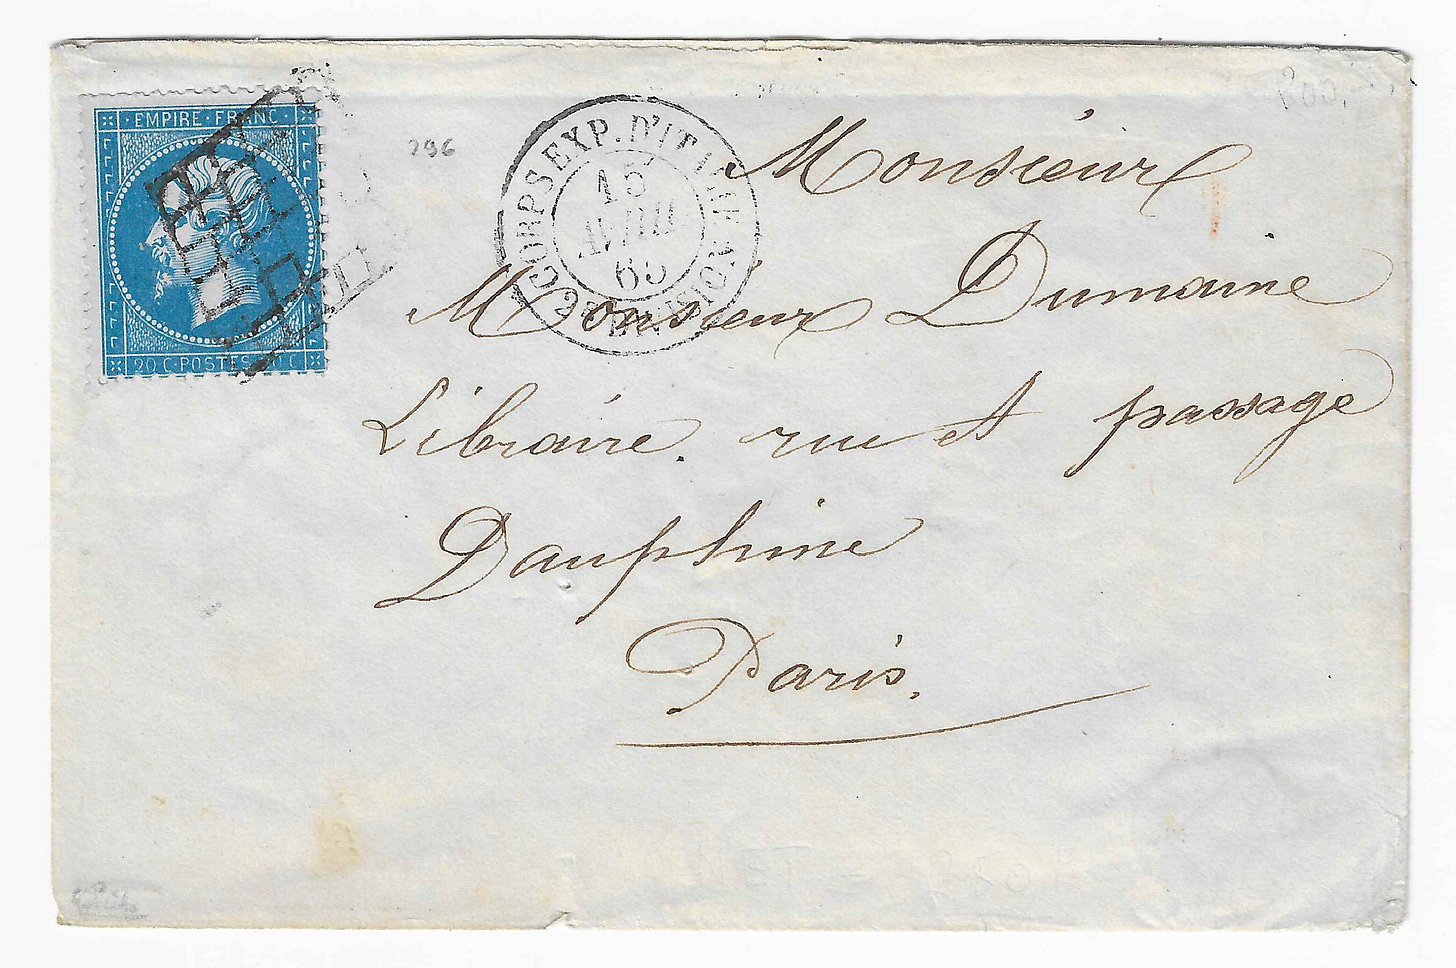 EMPIRE · FRANC
20 C · POSTES · 20 C
296
CORPS EXP. D'ITALIE 2E DIVISION
15
AVRIL
65
Monsieur
Monsieur Dumaine
Libraire. rue et passage
Dauphine
Paris.